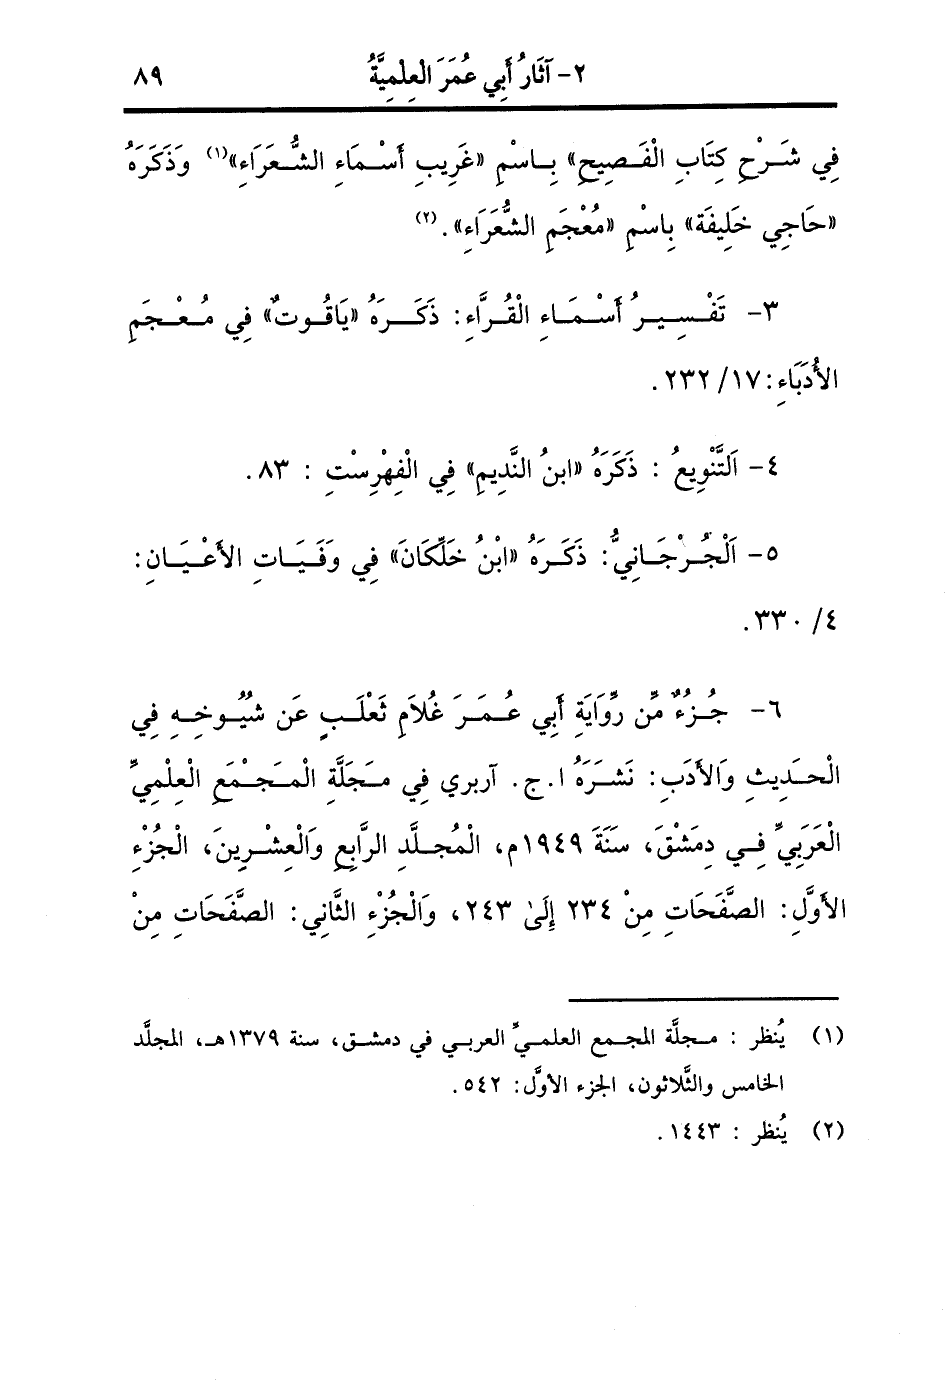 ٢- آثَارُ أَبِي عُمَرَ العِلمِيَّةُ ٨٩
فِي شَرْحِ كِتَابِ الْفَصِيحِ» بِاسْمِ «غَرِيبِ أَسْمَاءِ الشُّعَرَاءِ»(١) وَذَكَرَهُ
«حَاجِي خَلِيفَة» بِاسْمِ «مُعْجَمِ الشُّعَرَاءِ».(٢)
٣- تَفْسِيرُ أَسْمَاءِ الْقُرَّاءِ: ذَكَرَهُ «يَاقُوتٌ» فِي مُعْجَمِ
الأُدَبَاءِ: ١٧/ ٢٣٢.
٤- اَلتَّنْوِيعُ : ذَكَرَهُ «ابنُ النَّدِيمِ» فِي الْفِهْرِسْتِ : ٨٣.
٥- اَلْجُرْجَانِيُّ: ذَكَرَهُ «ابْنُ خَلِّكَانَ» فِي وَفَيَاتِ الأَعْيَانِ:
٤/ ٣٣٠.
٦- جُزءٌ مِّن رِّوَايَةِ أَبِي عُمَرَ غُلاَمِ ثَعْلَبٍ عَن شُيُوخِهِ فِي
الْحَدِيثِ وَالأَدَبِ: نَشَرَهُ ا. ج. آربري فِي مَجَلَّةِ الْمَجْمَعِ الْعِلْمِيِّ
الْعَرَبِيِّ فِي دِمَشْقَ، سَنَةَ ١٩٤٩م، الْمُجلَّدِ الرَّابِعِ وَالْعِشْرِينَ، الْجُزْءِ
الأَوَّلِ: الصَّفَحَاتِ مِنْ ٢٣٤ إِلَىٰ ٢٤٣، وَالْجُزْءِ الثَّانِي: الصَّفَحَاتِ مِنْ
(١) يُنظر : مجلَّة المجمع العلميِّ العربي في دمشق، سنة ١٣٧٩هـ، المجلَّد
الخامس والثَّلاثون، الجزء الأوَّل: ٥٤٢.
(٢) يُنظر : ١٤٤٣.